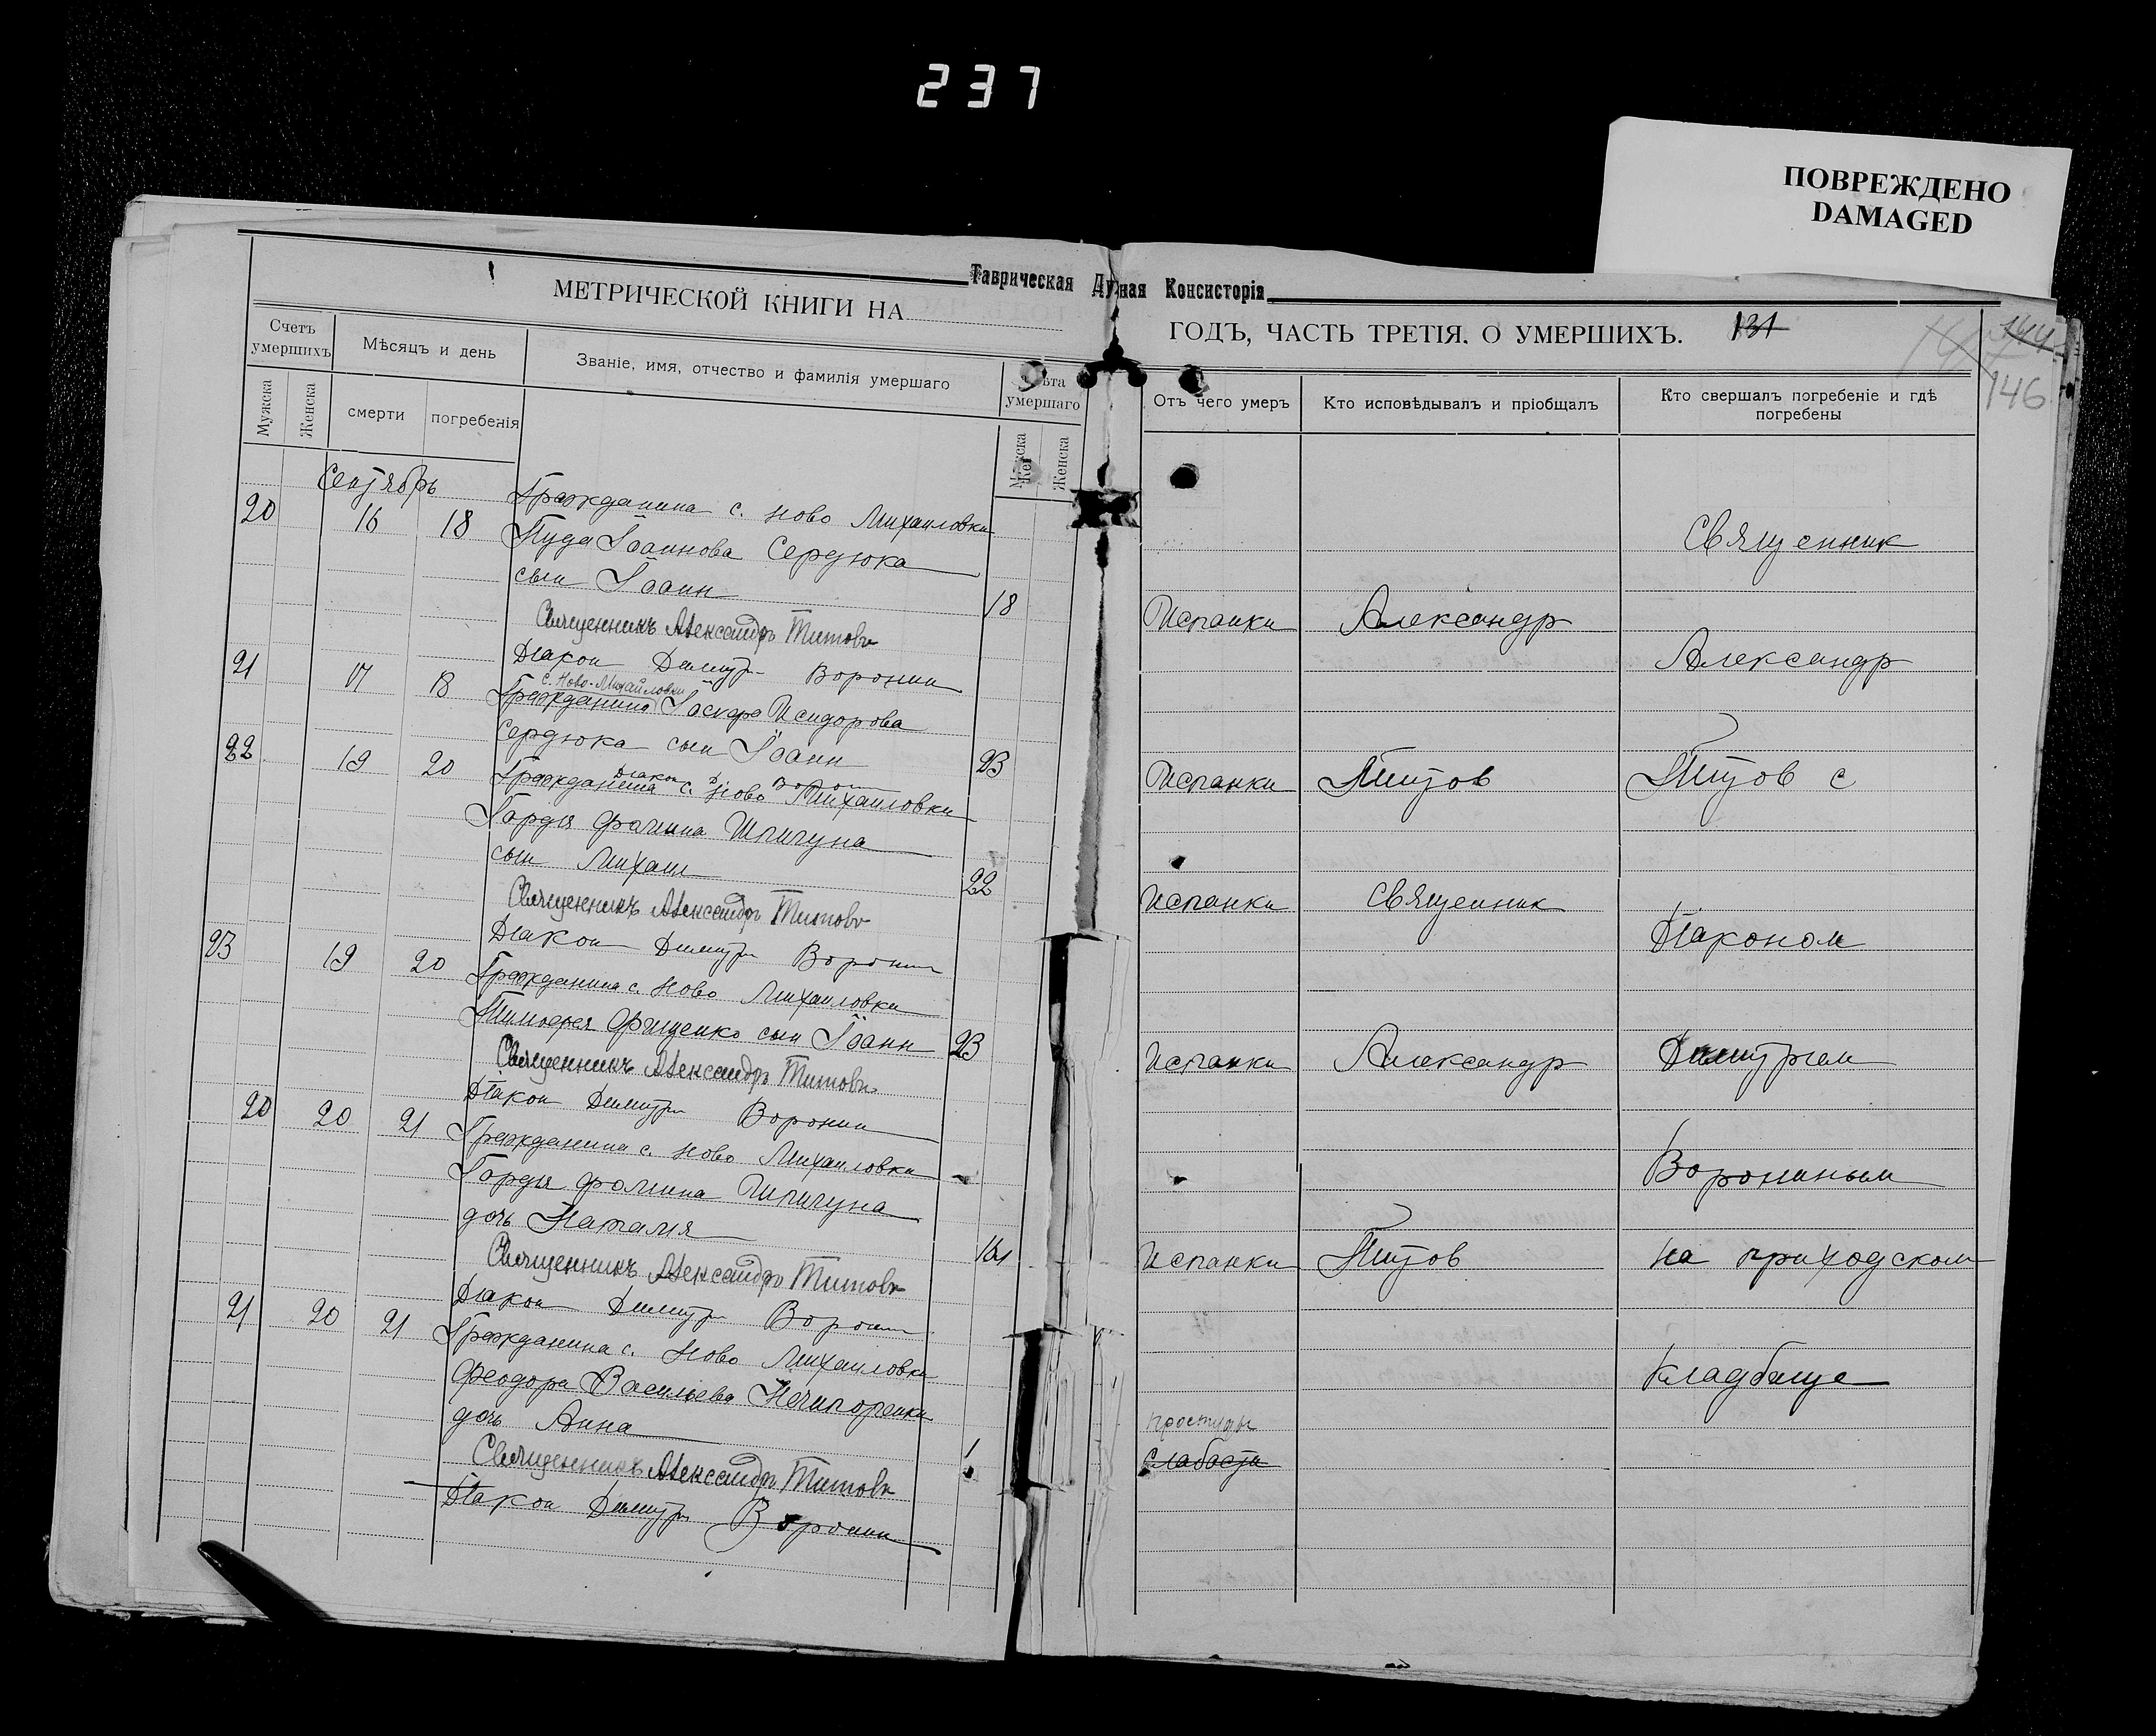 237
ПОВРЕЖДЕНО
DAMAGED
Таврическая Духная Консисторія
МЕТРИЧЕСКОЙ КНИГИ НА
ГОДЪ, ЧАСТЬ ТРЕТІЯ, О УМЕРШИХЪ.
131
144
146
Счетъ умершихъ
Мѣсяцъ и день
Званіе, имя, отчество и фамилія умершаго
Лѣта умершаго
Мужска
Женска
смерти
погребенія
Мужска
Женска
Отъ чего умеръ
Кто исповѣдывалъ и пріобщалъ
Кто свершалъ погребеніе и гдѣ погребены
Сентябрь
20 16 18 Гражданина с. Ново Михаиловки
Пуда Іоаннова Сердюка
сын Іоанн 18
Священникъ Александръ Титовъ
Діакон Димитр Воронин
21 17 18 с. Ново-Михайловки
Гражданина Исидорова
Сердюка сын Іоанн 23
Діакон Д Ворон
22 19 20 Гражданина с. Ново Михаиловки
Гордія Фомина Шпигуна
сын Михаил 22
Священникъ Александръ Титовъ
Діакон Димитр Воронин
23 19 20 Гражданина с. Ново Михаиловки
Тимофея Фищенко сын Іоанн 23
Священникъ Александръ Титовъ
Діакон Димитр Воронин
20 20 21 Гражданина с. Ново Михаиловки
Гордія Фомина Шпигуна
дочь Наталия
Священникъ Александръ Титовъ
Діакон Димитр Воронин
21 20 21 Гражданина с. Ново Михаиловки
Феодора Васильева Нечипоренки
дочь Анна 1
Священникъ Александръ Титовъ
Діакон Димитр Воронин
Испанки
Испанки
Испанки
Испанки
Испанки
простуды
слабости
Александр
Титов
Священник
Александр
Титов
Священник
Александр
Титов с
Діаконом
Димитрием
Ворониным
на приходском
кладбище